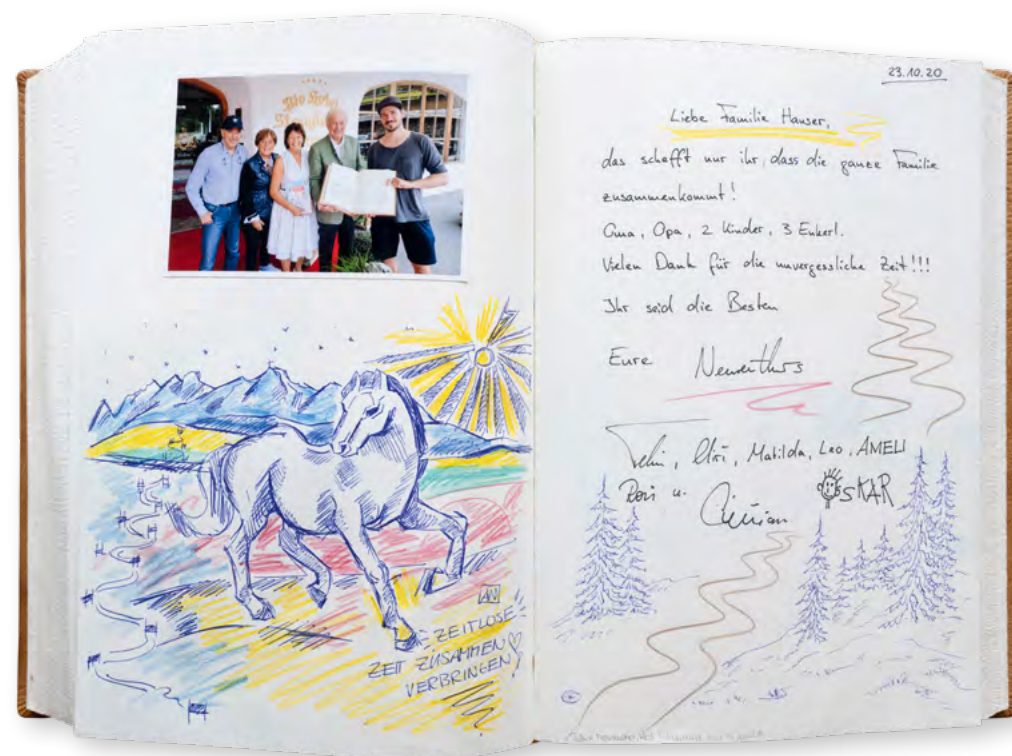 ZEITLOSE
ZEIT ZUSAMMEN
VERBRINGEN
23.10.20
Liebe Familie Hauser,
das schafft nur ihr, dass die ganze Familie
zusammenkommt!
Oma, Opa, 2 Kinder, 3 Enkerl.
Vielen Dank für die unvergessliche Zeit!!!
Ihr seid die Besten
Eure Neureuthers
Miri, Matilda, Leo, AMELI
Rosi u. Christian OSKAR